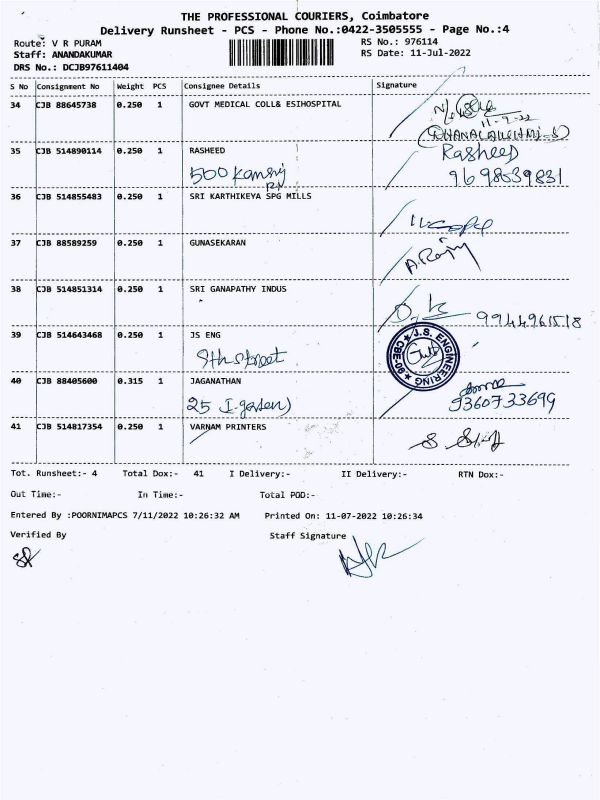 THE PROFESSIONAL COURIERS, Coimbatore
Delivery Runsheet - PCS - Phone No.:0422-3505555 - Page No.:4
Route: V R PURAM RS No.: 976114
Staff: ANANDAKUMAR RS Date: 11-Jul-2022
DRS No.: DCJB97611404
S No Consignment No Weight PCS Consignee Details Signature
34 CJB 88645738 0.250 1 GOVT MEDICAL COLL& ESIHOSPITAL
(DHANALAKSHMI-S)
35 CJB 514890114 0.250 1 RASHEED Rasheed
500 9698039831
36 CJB 514855483 0.250 1 SRI KARTHIKEYA SPG MILLS
37 CJB 88589259 0.250 1 GUNASEKARAN
38 CJB 514851314 0.250 1 SRI GANAPATHY INDUS
9944961518
39 CJB 514643468 0.250 1 JS ENG
9th street
J.S. ENGINEERING
CBE-90
40 CJB 88405600 0.315 1 JAGANATHAN
25 9360733699
41 CJB 514817354 0.250 1 VARNAM PRINTERS
Tot. Runsheet:- 4 Total Dox:- 41 I Delivery:- II Delivery:- RTN Dox:-
Out Time:- In Time:- Total POD:-
Entered By :POORNIMAPCS 7/11/2022 10:26:32 AM Printed On: 11-07-2022 10:26:34
Verified By Staff Signature